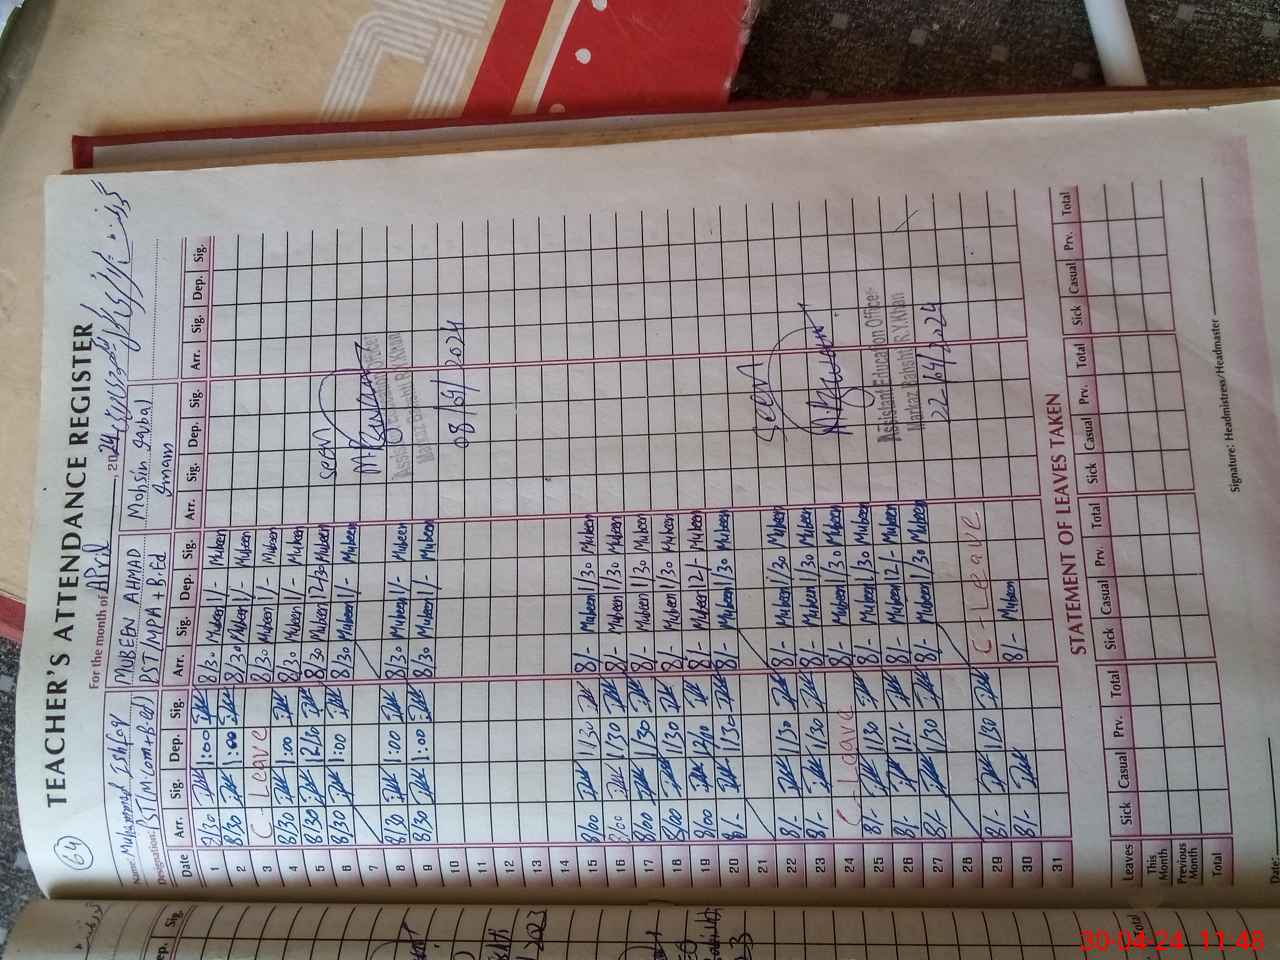 64
TEACHER'S ATTENDANCE REGISTER
For the month of April, 2024
Name: Muhammad Ishfaq MUBEEN AHMAD Mohsin Iqbal
Designation: EST/M.com+B.ed) PST/MPA + B.Ed Imam
Date Arr. Sig. Dep. Sig. Arr. Sig. Dep. Sig. Arr. Sig. Dep. Sig. Arr. Sig. Dep. Sig.
1 8/30 1:00 8/30 Mubeen 1/- Mubeen
2 8/30 1:00 8/30 Mubeen 1/- Mubeen
3 C - Leave 8/30 Mubeen 1/- Mubeen
4 8/30 1:00 8/30 Mubeen 1/- Mubeen
5 8/30 12/30 8/30 Mubeen 12/30 Mubeen
6 8/30 1:00 8/30 Mubeen 1/- Mubeen
seen
7
8 8/30 1:00 8/30 Mubeen 1/- Mubeen
9 8/30 1:00 8/30 Mubeen 1/- Mubeen
Assistant Education Officer
Markaz Bahishti R.Y.Khan
08/04/2024
10
11
12
13
14
15 8/00 1/30 8/- Mubeen 1/30 Mubeen
16 8/00 1/30 8/- Mubeen 1/30 Mubeen
17 8/00 1/30 8/- Mubeen 1/30 Mubeen
18 8/00 1/30 8/- Mubeen 1/30 Mubeen
19 8/00 12/10 8/- Mubeen 12/- Mubeen
20 8/- 1/30 8/- Mubeen 1/30 Mubeen
21
seen
22 8/- 1/30 8/- Mubeen 1/30 Mubeen
23 8/- 1/30 8/- Mubeen 1/30 Mubeen
24 C - Leave 8/- Mubeen 1/30 Mubeen
25 8/- 1/30 8/- Mubeen 1/30 Mubeen
Assistant Education Officer
Markaz Bahishti R.Y.Khan
26 8/- 12/- 8/- Mubeen 12/- Mubeen
27 8/- 1/30 8/- Mubeen 1/30 Mubeen
22/04/2024
28
29 8/- 1/30 C - Leave
30 8/- 8/- Mubeen
31
STATEMENT OF LEAVES TAKEN
Leaves Sick Casual Prv. Total Sick Casual Prv. Total Sick Casual Prv. Total Sick Casual Prv. Total
This Month
Previous Month
Total
Signature: Headmistress/Headmaster
Date:
Dep. Sig.
2023
Total
30-04-24 11:48